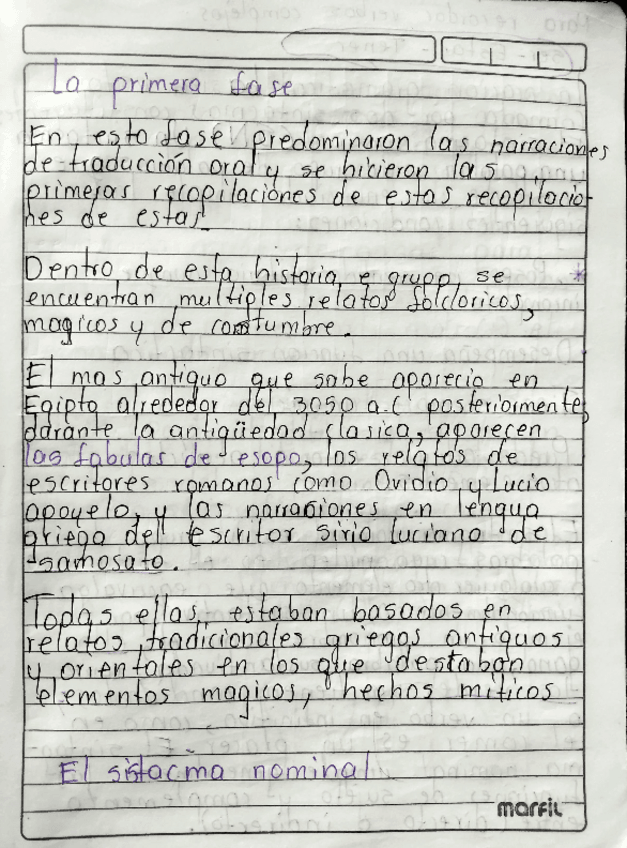 La primera fase
En esta fase predominaron las narraciones
de traducción oral y se hicieron las
primeras recopilaciones de estas recopilacio
nes de estas
Dentro de esta historia e grupo se *
encuentran multiples relatos folcloricos,
magicos y de costumbre.
El mas antiguo que sabe aparecio en
Egipto alrededor del 3050 a.C posteriormente,
darante la antigüedad clasica, aparecen
las fabulas de esopo, los relatos de
escritores romanos como Ovidio y Lucio
apoyelo, y las narraciones en lengua
griega del escritor sirio luciano de
samosato.
Todas ellas, estaban basados en
relatos tradicionales griegos antiguos
y orientales en los que destaban
elementos magicos, hechos miticos
El sistacma nominal
marfil